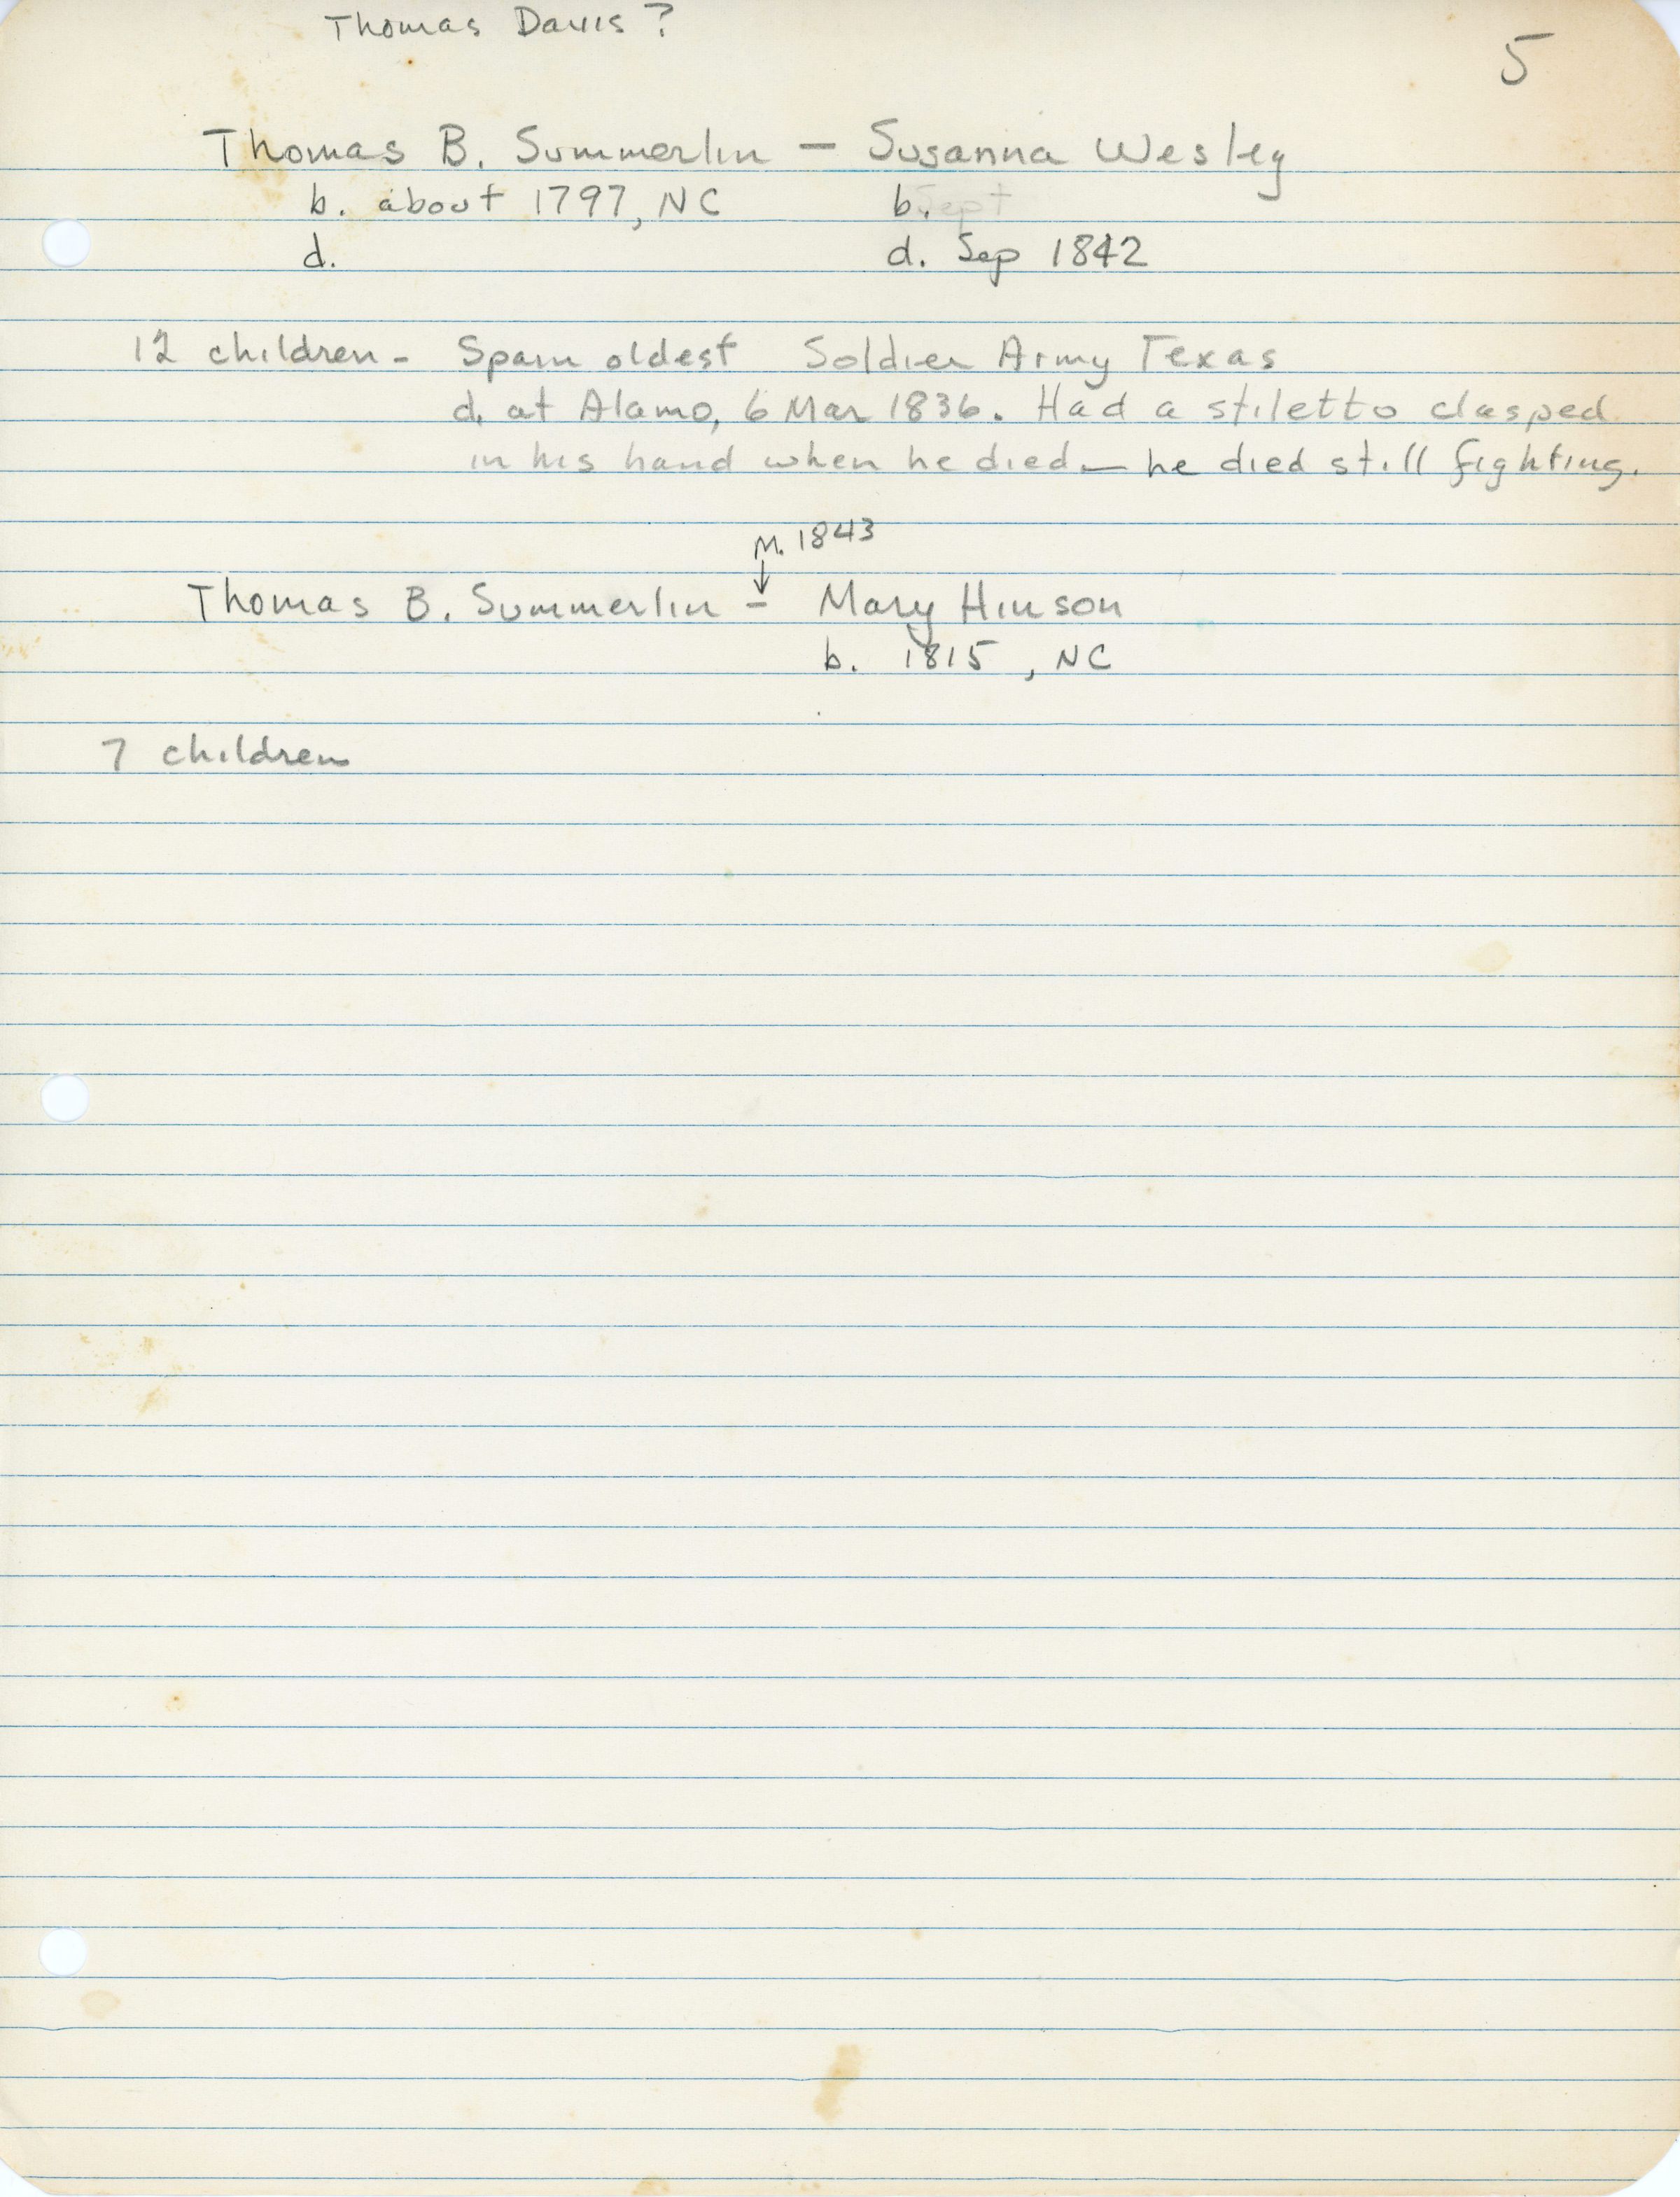 Thomas Davis?
5
Thomas B. Summerlin — Susanna Wesley
b. about 1797, NC b. Sept
d. d. Sep 1842
12 children - Spain oldest Soldier Army Texas
d. at Alamo, 6 Mar 1836. Had a stiletto clasped
in his hand when he died — he died still fighting.
M. 1843
↓
Thomas B. Summerlin - Mary Hinson
b. 1815, NC
7 children